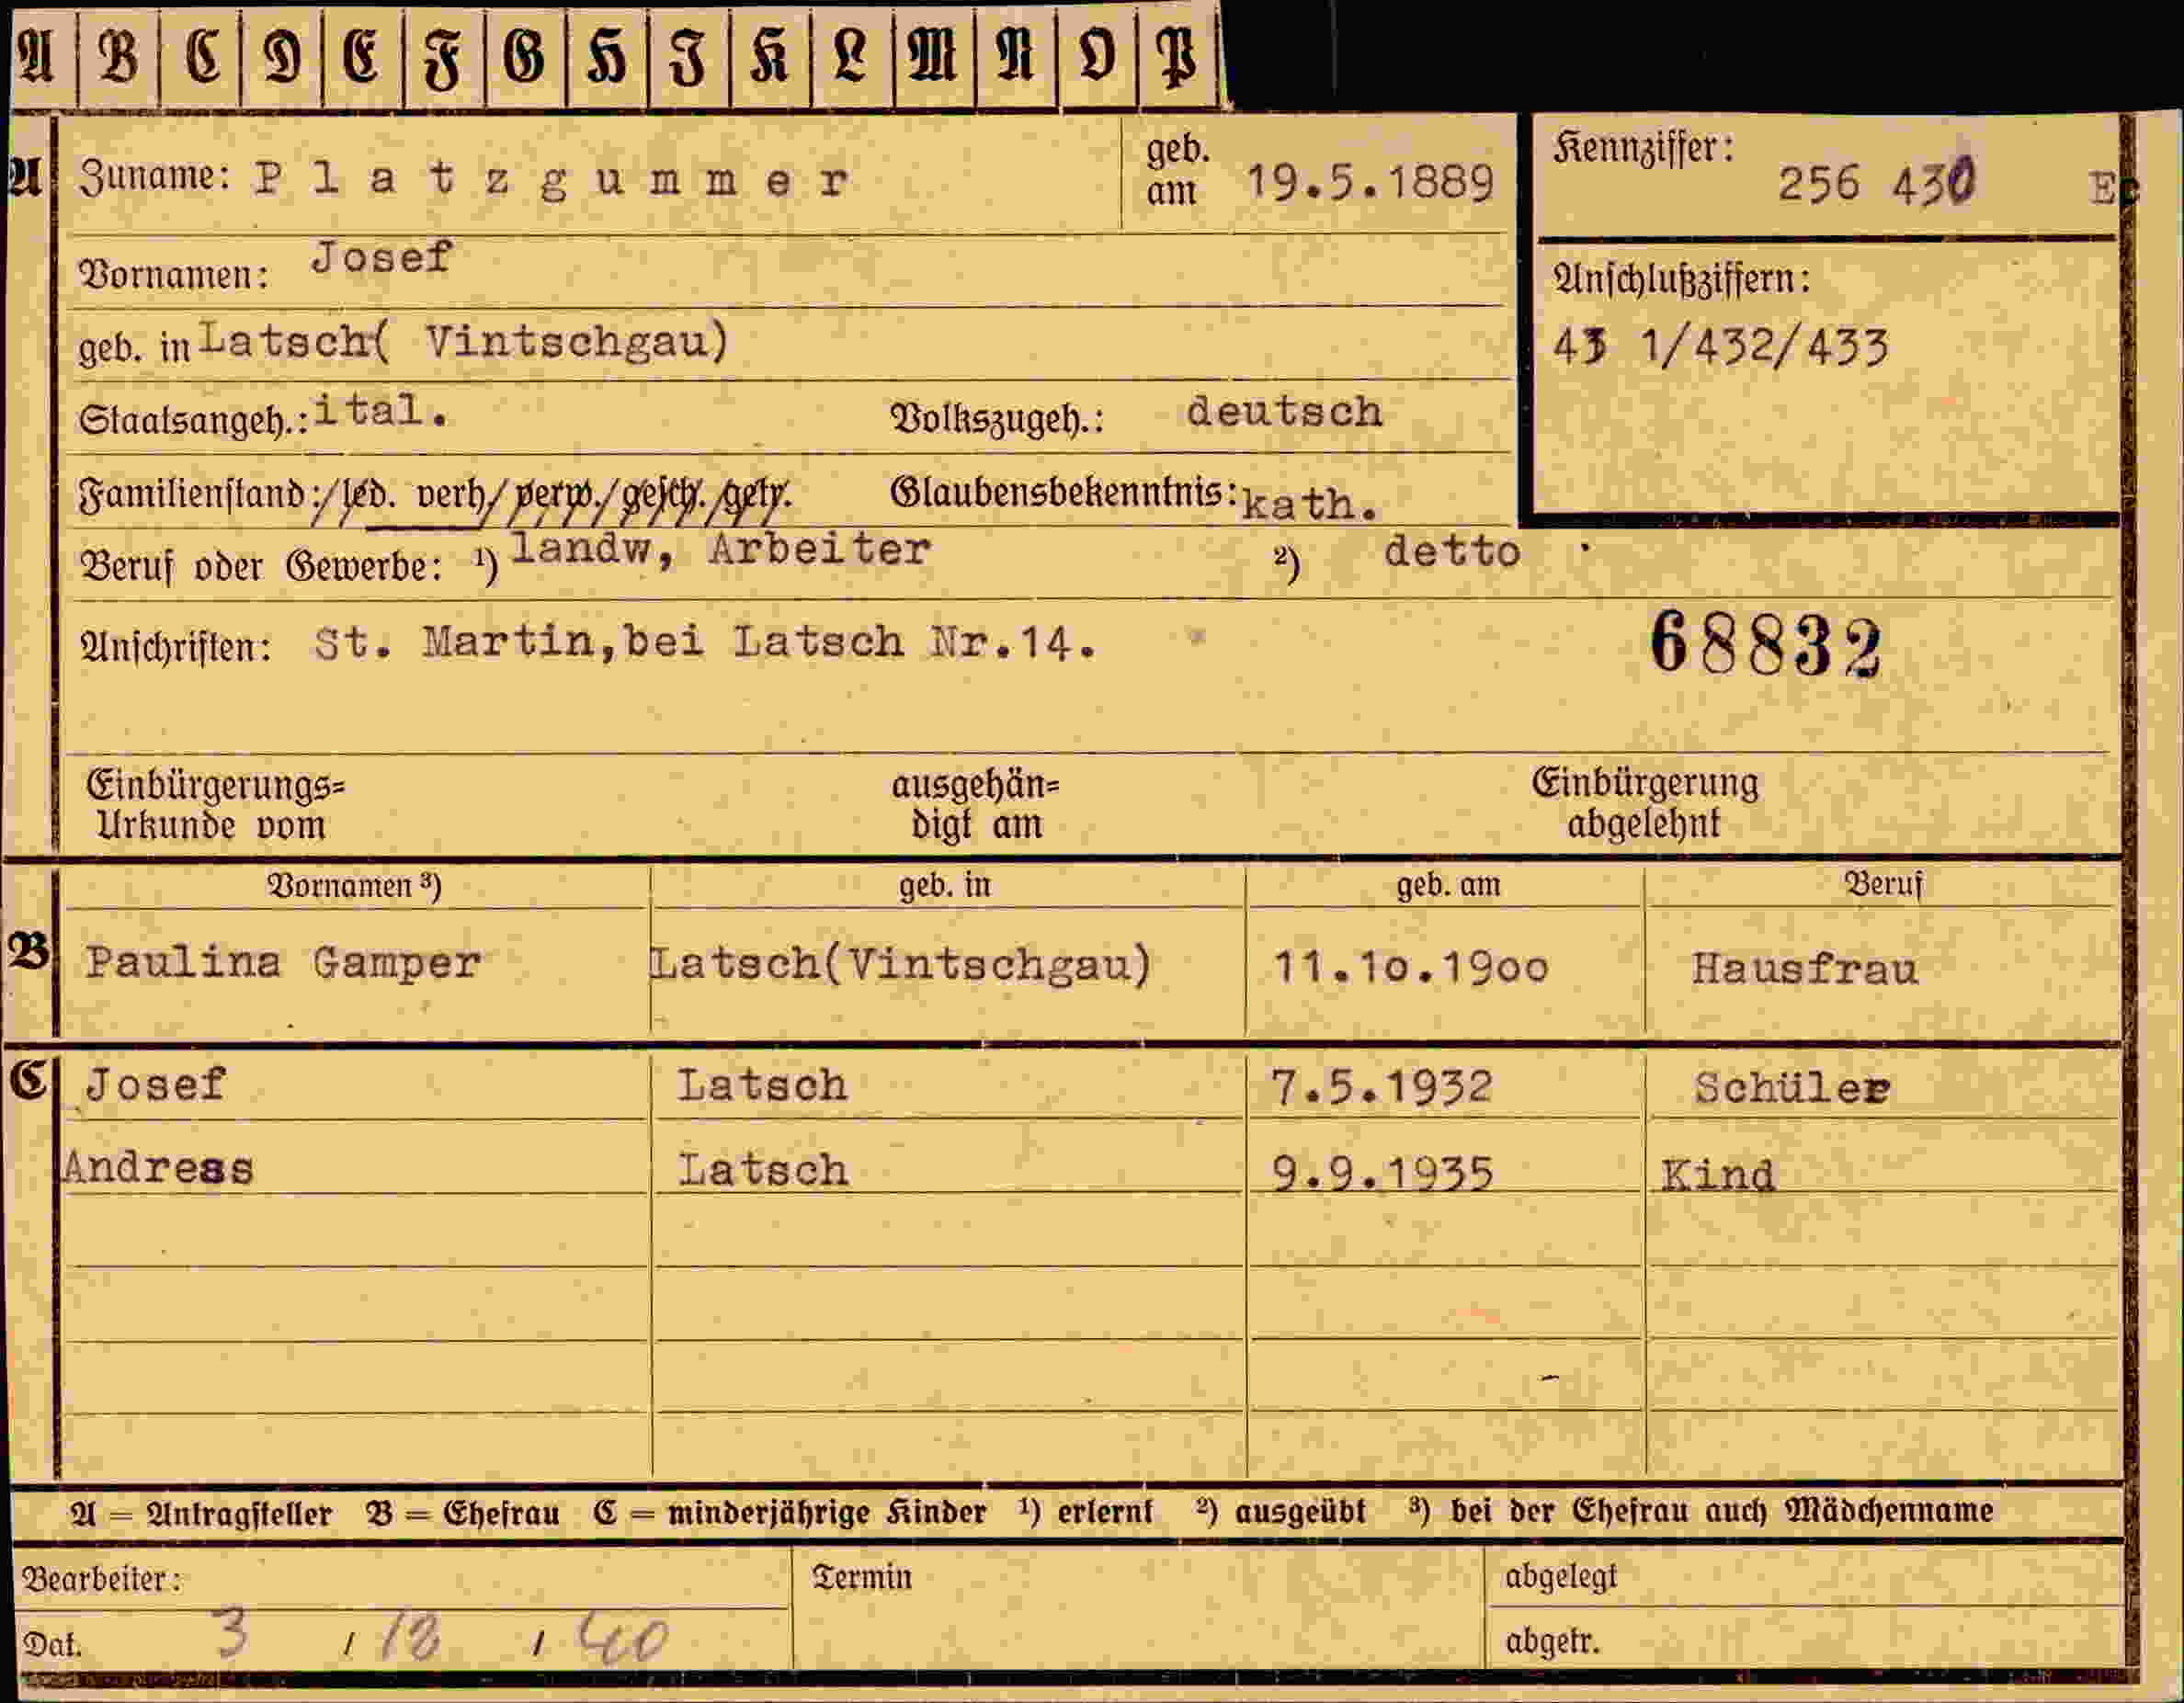 A B C D E F G H I K L M N O P
A Zuname: Platzgummer geb. am 19.5.1889 Kennziffer: 256 430
Vornamen: Josef Anschlußziffern:
geb. in Latsch( Vintschgau) 431/432/433
Staatsangeh.: ital. Volkszugeh.: deutsch
Familienstand:/led. verh/verw./gesch./getr. Glaubensbekenntnis: kath.
Beruf oder Gewerbe: ¹) landw, Arbeiter ²) detto
Anschriften: St. Martin,bei Latsch Nr.14. 68832
Einbürgerungs= ausgehän= Einbürgerung
Urkunde vom digt am abgelehnt
Vornamen ³) geb. in geb. am Beruf
B Paulina Gamper Latsch(Vintschgau) 11.10.1900 Hausfrau
C Josef Latsch 7.5.1932 Schüler
Andreas Latsch 9.9.1935 Kind
A = Antragsteller B = Ehefrau C = minderjährige Kinder ¹) erlernt ²) ausgeübt ³) bei der Ehefrau auch Mädchenname
Bearbeiter: Termin abgelegt
Dat. 3 / 12 / 40 abgetr.